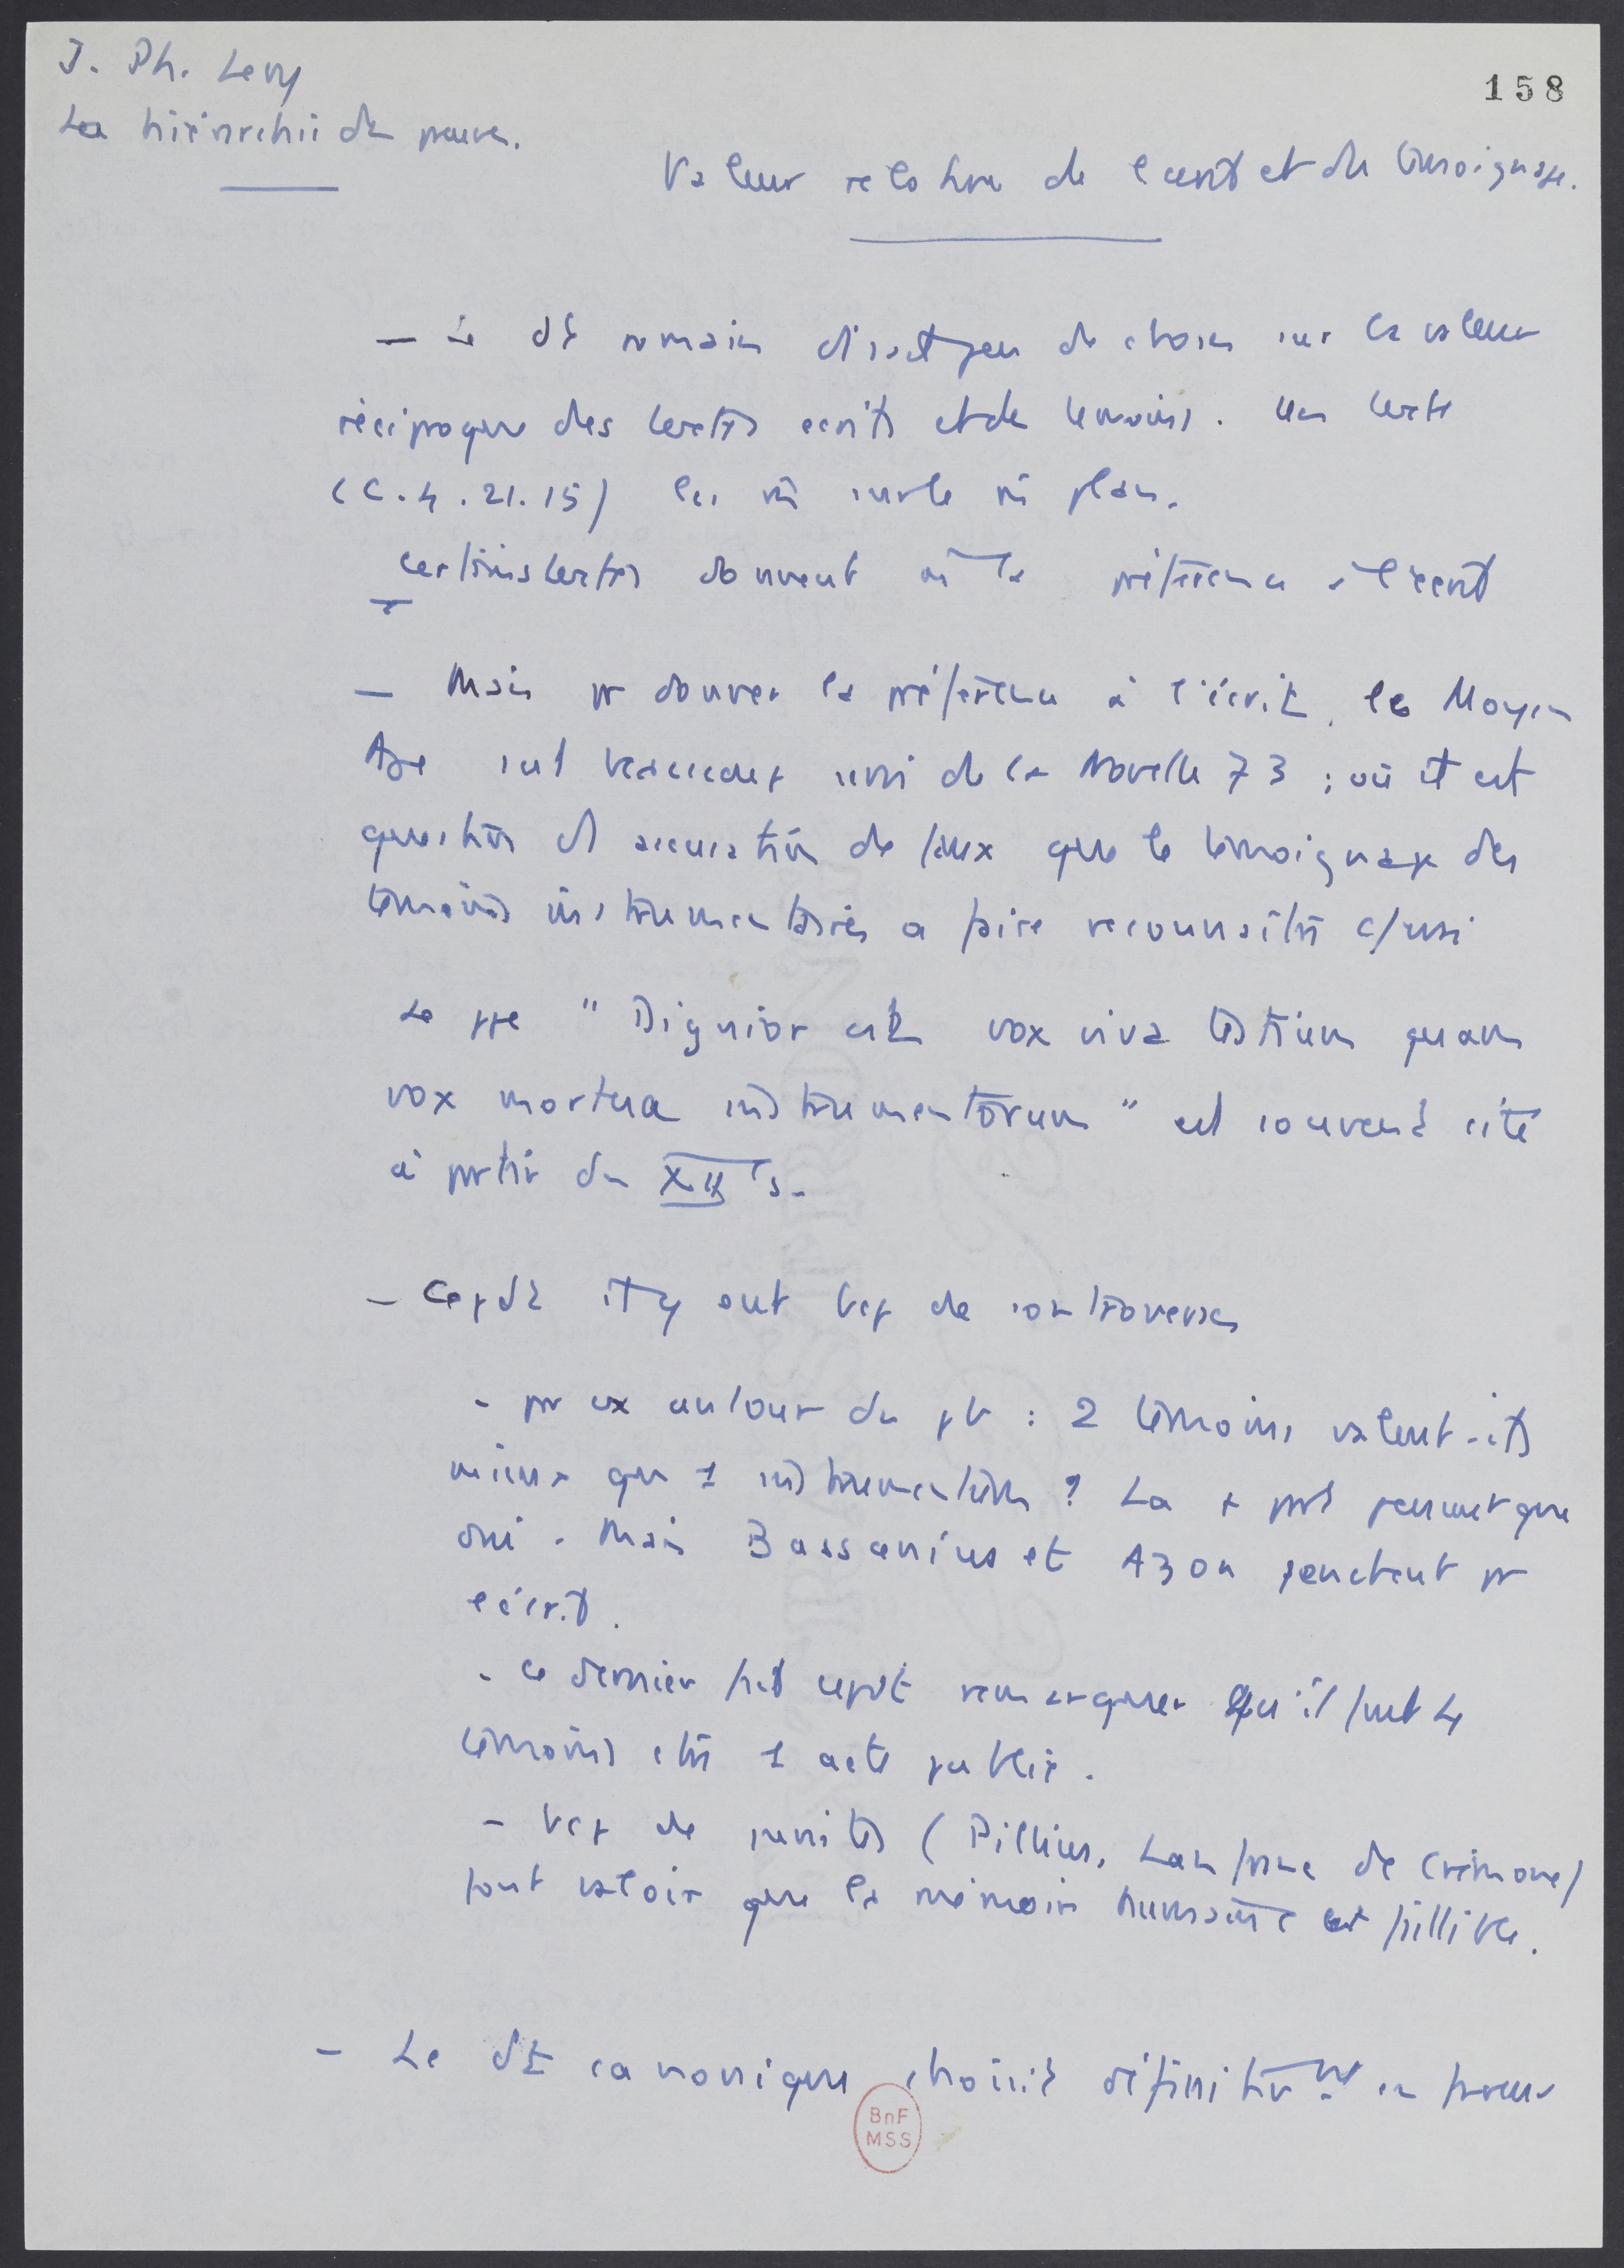 J. Ph. Levy
158
La hiérarchie des preuves.
Valeur relative de l'écrit et du témoignage.
— Le dt romain disait peu de choses sur la valeur
réciproque des textes écrits et des témoins. Un texte
(C. 4. 21. 15) les met sur le m plan.
— certains textes donnent m la préférence à l'écrit
— Mais pr donner la préférence à l'écrit, le Moyen
Age sut servi de la Novelle 73 ; où il est
question d'accusation de faux que le témoignage des
témoins instrumentaires a faire reconnaître
Le ppe "Dignior est vox viva testium quam
vox mortua instrumentorum" est souvent cité
à partir du XII s.
— Cepdt il y eut bcp de controverses
- pr ex autour du pb : 2 témoins valent-ils
mieux que 1 instrumentum ? La + part pensent que
oui. Mais Bassanius et Azon penchent pr
l'écrit.
- Ce dernier fait cepdt remarquer qu'il faut 4
témoins ctre 1 acte public.
- bcp de juristes (Pillius, Lanfranc de Crémone)
font valoir que la mémoire humaine est faillible.
- Le dt canonique choisit définitivmt en faveur
BnF
MSS